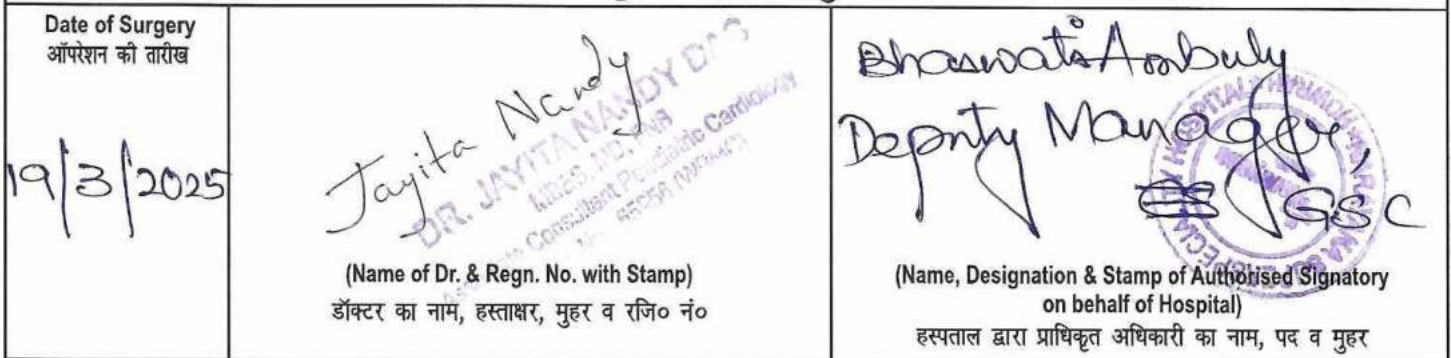 Date of Surgery
ऑपरेशन की तारीख
19/3/2025
Jayita Nandy
DR. JAYITA NANDY DAS
MBBS, MD, FNB
Consultant Pediatric Cardiology
(Name of Dr. & Regn. No. with Stamp)
डॉक्टर का नाम, हस्ताक्षर, मुहर व रजि० नं०
Bhaswati
Deputy Manager,
GSC
(Name, Designation & Stamp of Authorised Signatory
on behalf of Hospital)
हस्पताल द्वारा प्राधिकृत अधिकारी का नाम, पद व मुहर